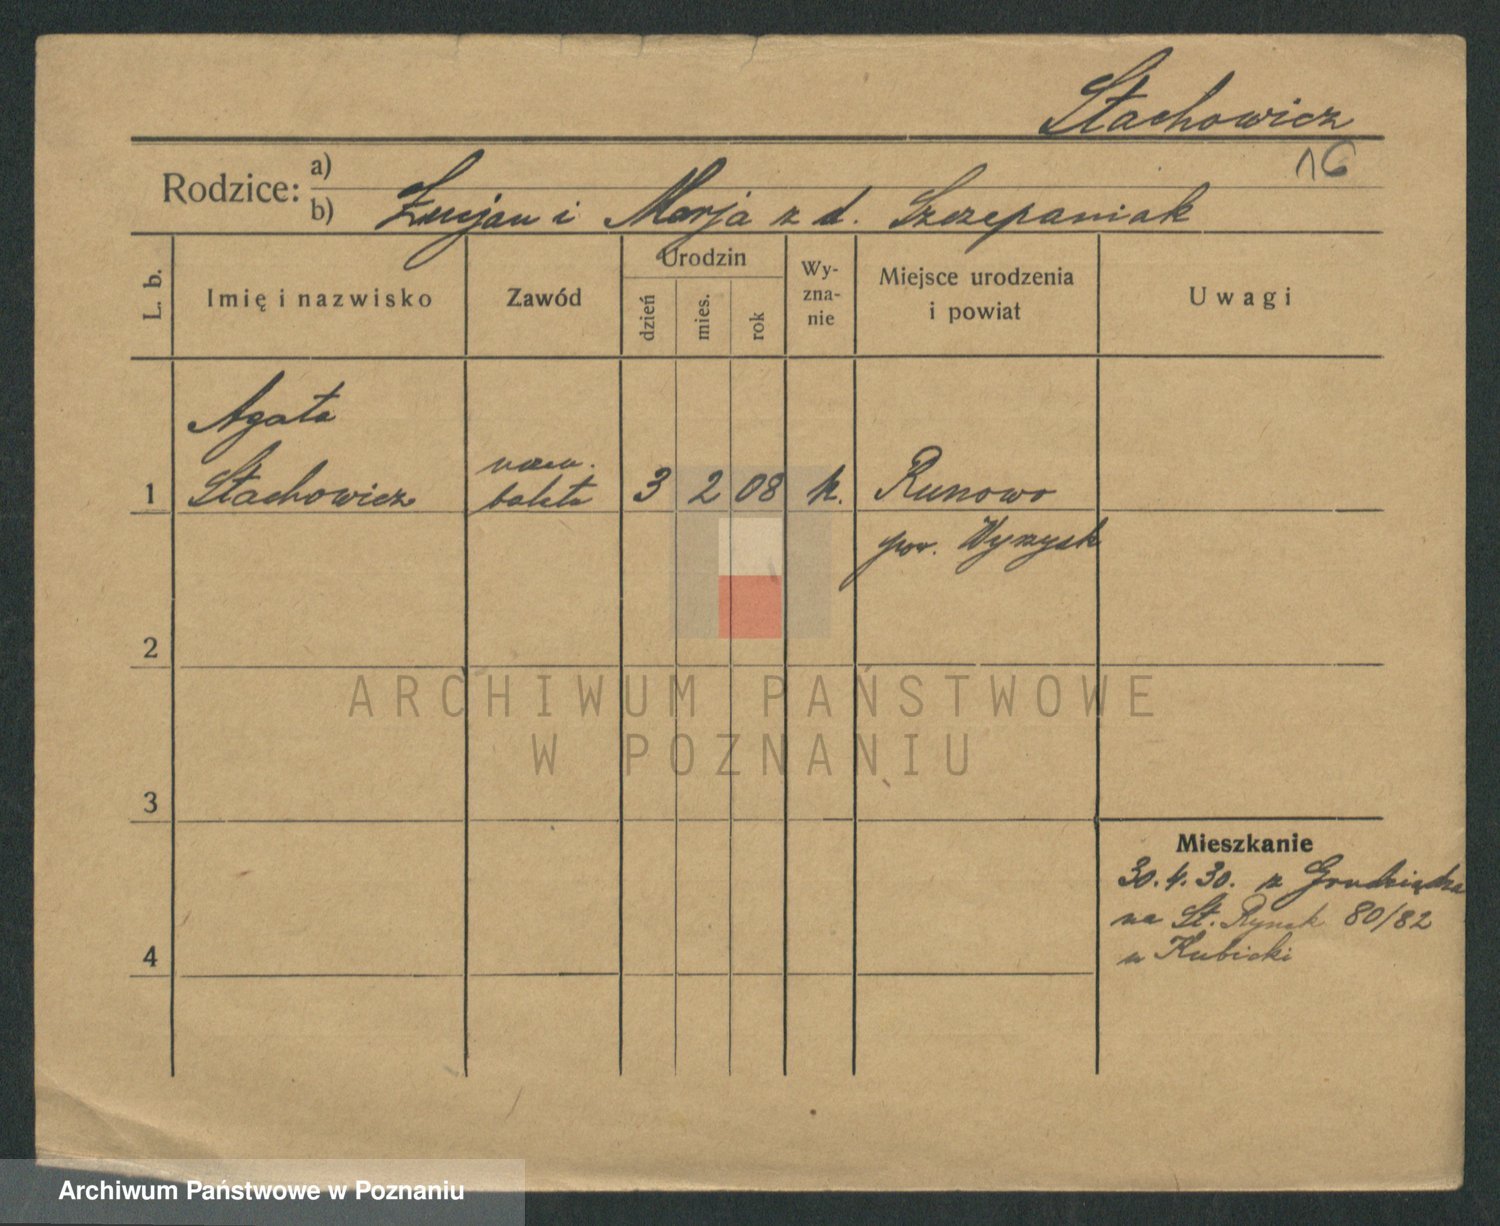 Stachowicz
16
Rodzice: a)
b) Lucjan i Marja z d. Szczepaniak
L. b.
Imię i nazwisko
Zawód
Urodzin
dzień
mies.
rok
Wy-
zna-
nie
Miejsce urodzenia
i powiat
Uwagi
Agata
1 Stachowicz 3 2 08 k. Runowo
pow. Wyrzysk
2
ARCHIWUM PAŃSTWOWE
W POZNANIU
3
Mieszkanie
30.4.30. z Grudziądza
na St. Rynek 80/82
4
u Kubicki
Archiwum Państwowe w Poznaniu